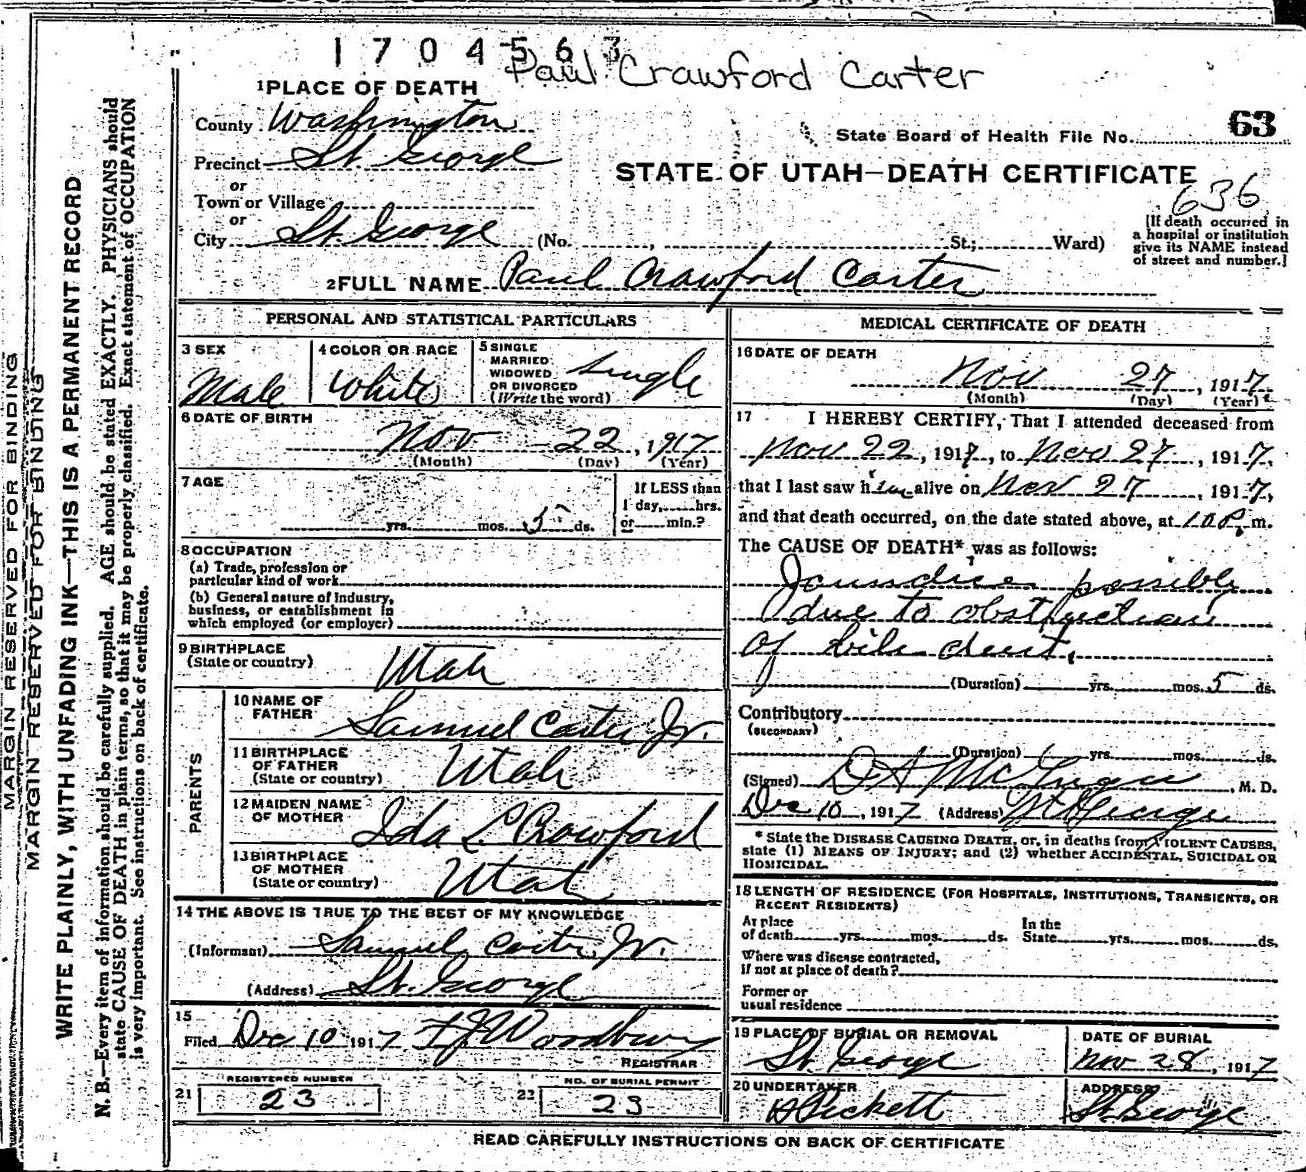 1704563
Paul Crawford Carter
1 PLACE OF DEATH
County Washington
Precinct St. George
or
Town or Village
or
City St. George (No. , St.; Ward)
State Board of Health File No. 63
STATE OF UTAH—DEATH CERTIFICATE
636
[If death occurred in
a hospital or institution
give its NAME instead
of street and number.]
2 FULL NAME Paul Crawford Carter
PERSONAL AND STATISTICAL PARTICULARS
3 SEX
Male
4 COLOR OR RACE
White
5 SINGLE
MARRIED
WIDOWED
OR DIVORCED
(Write the word)
Single
6 DATE OF BIRTH
Nov 22, 1917
(Month) (Day) (Year)
7 AGE
yrs. mos. 5 ds.
If LESS than
1 day, hrs.
or min.?
8 OCCUPATION
(a) Trade, profession or
particular kind of work
(b) General nature of Industry,
business, or establishment in
which employed (or employer)
9 BIRTHPLACE
(State or country)
Utah
PARENTS
10 NAME OF
FATHER
Samuel Carter Jr.
11 BIRTHPLACE
OF FATHER
(State or country)
Utah
12 MAIDEN NAME
OF MOTHER
Ida L Crawford
13 BIRTHPLACE
OF MOTHER
(State or country)
Utah
14 THE ABOVE IS TRUE TO THE BEST OF MY KNOWLEDGE
(Informant) Samuel Carter Jr.
(Address) St. George
15
Filed Dec 10 1917 F J Woodbury
REGISTRAR
21 REGISTERED NUMBER
23
22 NO. OF BURIAL PERMIT
23
MEDICAL CERTIFICATE OF DEATH
16 DATE OF DEATH
Nov 27, 1917
(Month) (Day) (Year)
17 I HEREBY CERTIFY, That I attended deceased from
Nov 22, 1917, to Nov 27, 1917,
that I last saw him alive on Nov 27, 1917,
and that death occurred, on the date stated above, at 10 P. m.
The CAUSE OF DEATH* was as follows:
Jaundice possibly
due to obstruction
of bile duct.
(Duration) yrs. mos. 5 ds.
Contributory
(SECONDARY)
(Duration) yrs. mos. ds.
(Signed) D A McGregor, M. D.
Dec 10, 1917 (Address) St George
* State the DISEASE CAUSING DEATH, or, in deaths from VIOLENT CAUSES,
state (1) MEANS OF INJURY; and (2) whether ACCIDENTAL, SUICIDAL OR
HOMICIDAL.
18 LENGTH OF RESIDENCE (FOR HOSPITALS, INSTITUTIONS, TRANSIENTS, OR
RECENT RESIDENTS)
At place In the
of death yrs. mos. ds. State yrs. mos. ds.
Where was disease contracted,
if not at place of death?
Former or
usual residence
19 PLACE OF BURIAL OR REMOVAL
St. George
DATE OF BURIAL
Nov 28, 1917
20 UNDERTAKER
Pickett
ADDRESS
St. George
READ CAREFULLY INSTRUCTIONS ON BACK OF CERTIFICATE
MARGIN RESERVED FOR BINDING
MARGIN RESERVED FOR BINDING
WRITE PLAINLY, WITH UNFADING INK—THIS IS A PERMANENT RECORD
N. B.—Every item of information should be carefully supplied. AGE should be stated EXACTLY. PHYSICIANS should
state CAUSE OF DEATH in plain terms, so that it may be properly classified. Exact statement of OCCUPATION
is very important. See instructions on back of certificate.